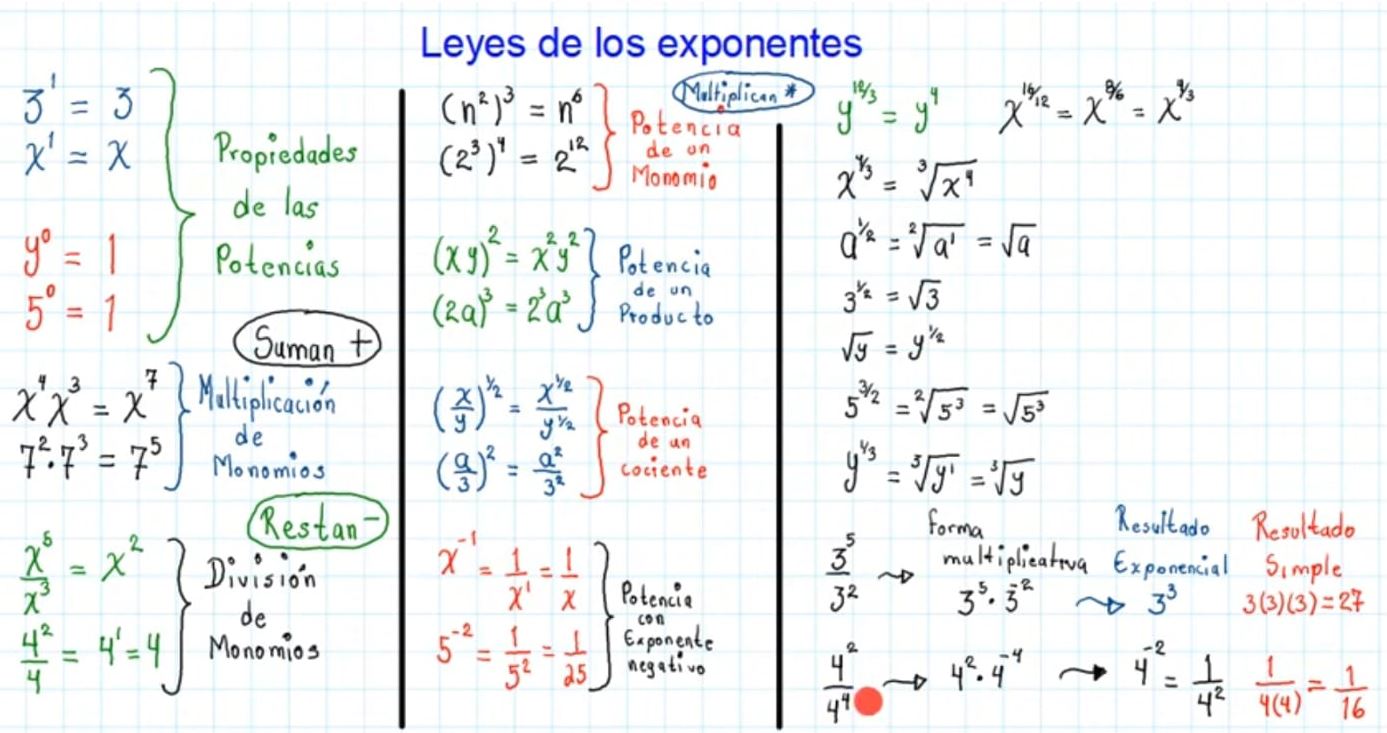 Leyes de los exponentes
3¹ = 3
x¹ = x
y⁰ = 1
5⁰ = 1
Propiedades
de las
Potencias
Suman +
x⁴x³ = x⁷
7²·7³ = 7⁵
Multiplicación
de
Monomios
Restan -
x⁵/x³ = x²
4²/4 = 4¹ = 4
División
de
Monomios
Multiplican *
(n²)³ = n⁶
(2³)⁴ = 2¹²
Potencia
de un
Monomio
(xy)² = x²y²
(2a)³ = 2³a³
Potencia
de un
Producto
(x/y)^½ = x^½/y^½
(a/3)² = a²/3²
Potencia
de un
cociente
x⁻¹ = 1/x¹ = 1/x
5⁻² = 1/5² = 1/25
Potencia
con
Exponente
negativo
y^12/3 = y⁴
x^16/12 = x^8/6 = x^4/3
x^4/3 = ³√x⁴
a^½ = ²√a¹ = √a
3^½ = √3
√y = y^½
5^3/2 = ²√5³ = √5³
y^1/3 = ³√y¹ = ³√y
forma
multiplicativa
Resultado
Exponencial
Resultado
Simple
3⁵/3² → 3⁵·3⁻² → 3³ 3(3)(3)=27
4²/4⁴ → 4²·4⁻⁴ → 4⁻² = 1/4² 1/4(4) = 1/16